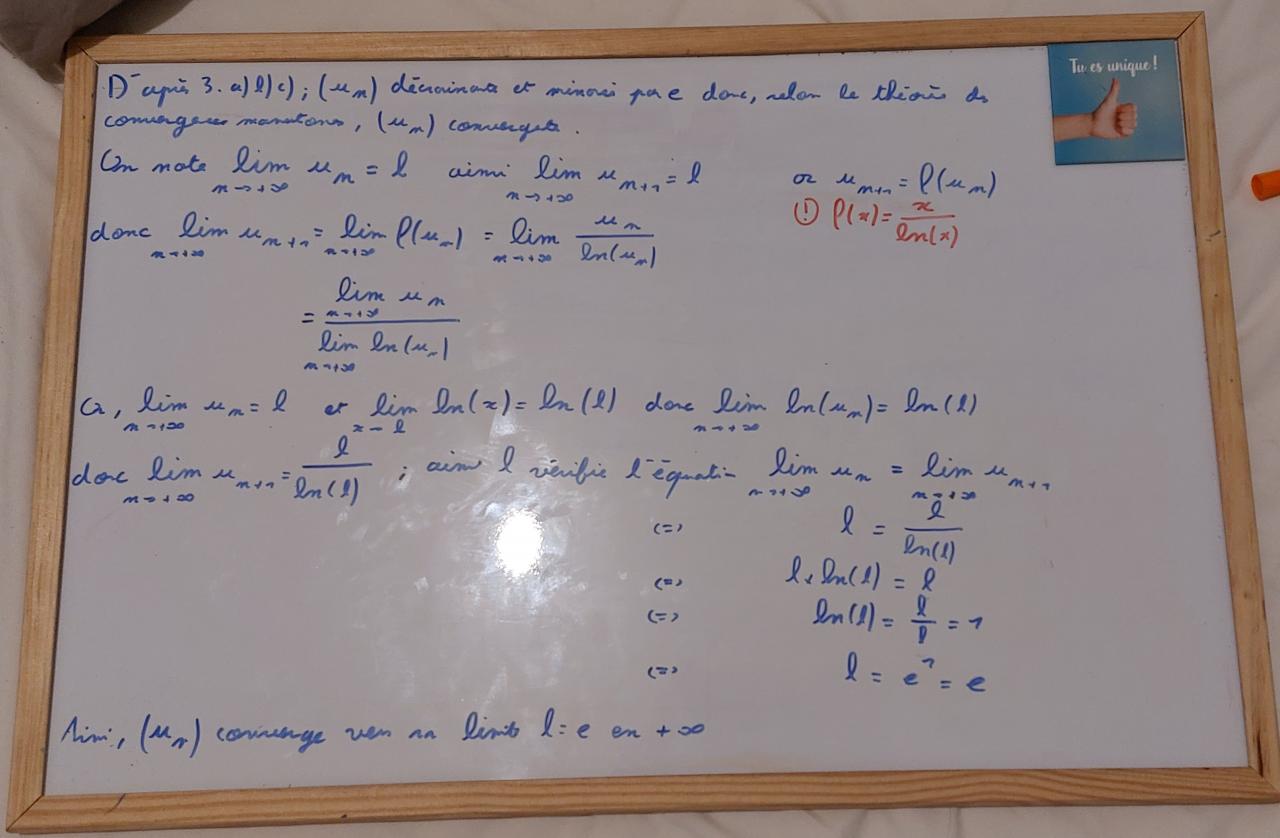 D'après 3. a) b) c) ; (uₙ) décroissante et minorée par e donc, selon le théorème de
convergence monotone, (uₙ) convergente.
Tu es unique !
On note lim uₙ = l ainsi lim uₙ₊₁ = l or uₙ₊₁ = f(uₙ)
n→+∞ n→+∞
(!) f(x) = x/ln(x)
donc lim uₙ₊₁ = lim f(uₙ) = lim uₙ/ln(uₙ)
n→+∞ n→+∞ n→+∞
= lim uₙ / lim ln(uₙ)
n→+∞ n→+∞
Or, lim uₙ = l et lim ln(x) = ln(l) donc lim ln(uₙ) = ln(l)
n→+∞ x→l n→+∞
donc lim uₙ₊₁ = l/ln(l) ; ainsi l vérifie l'équation lim uₙ = lim uₙ₊₁
n→+∞ n→+∞ n→+∞
<=> l = l/ln(l)
<=> l × ln(l) = l
<=> ln(l) = l/l = 1
<=> l = e¹ = e
Ainsi, (uₙ) converge vers sa limite l = e en +∞